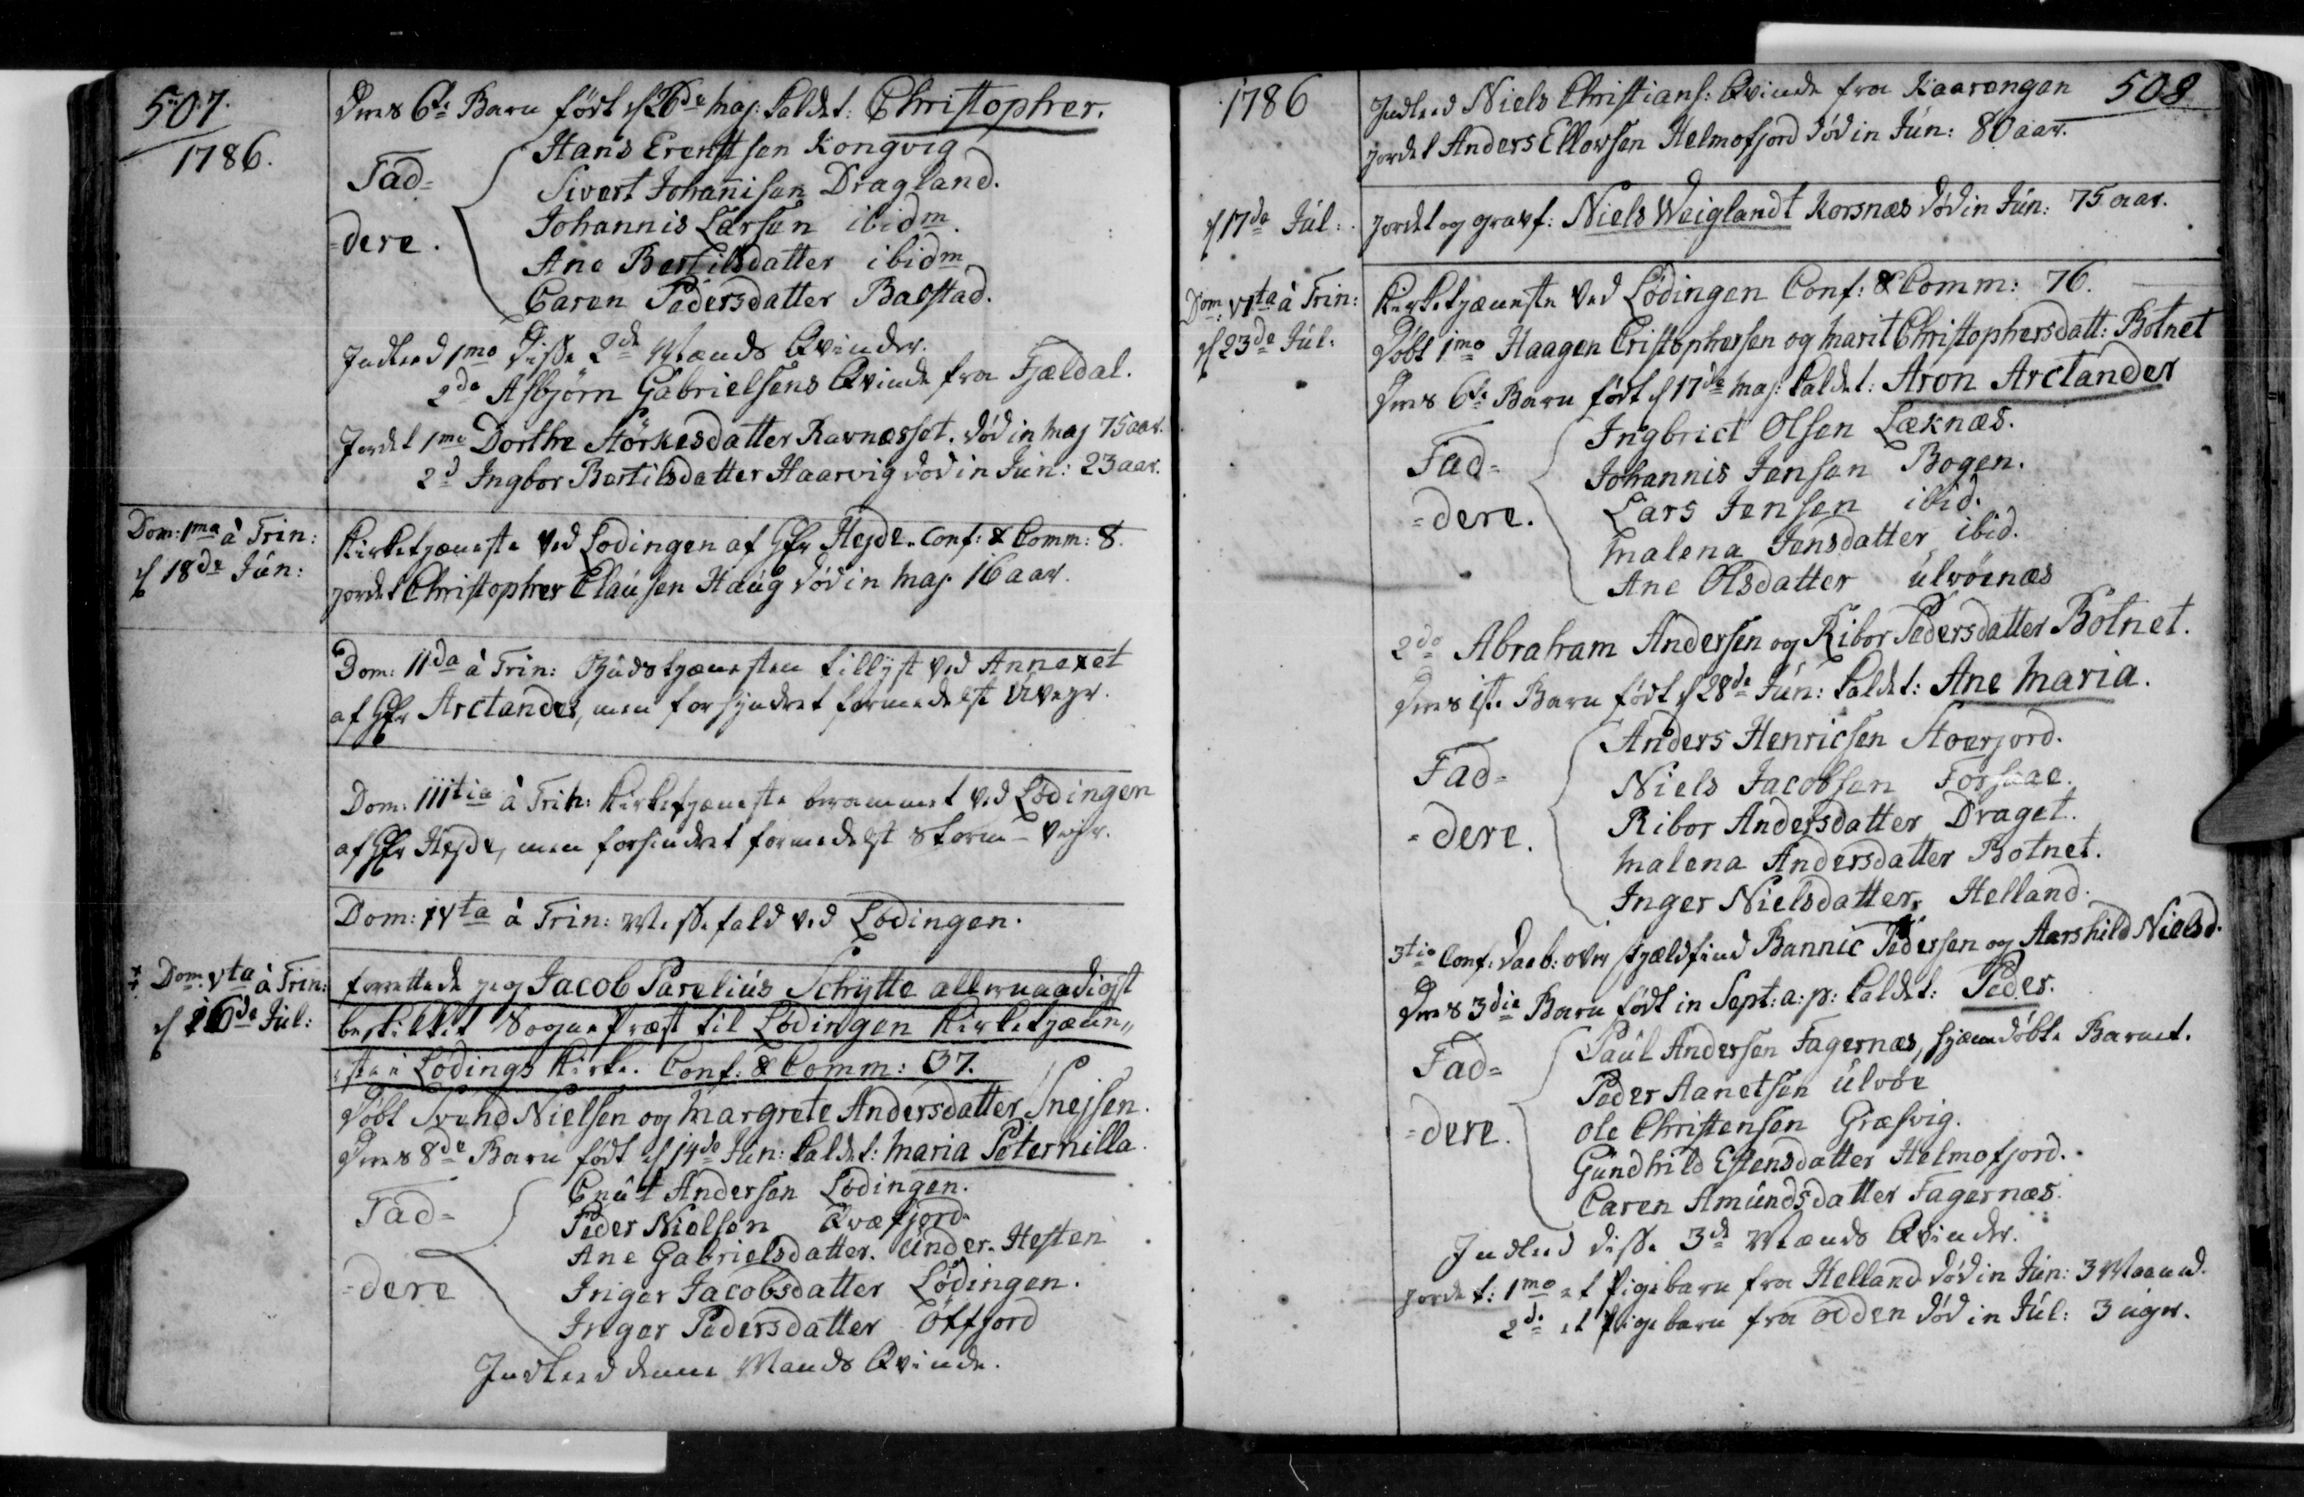 507.
1786.
Dres 6te Barn født d 26de Maj: kaldet: Christopher.
Fad=
=dere.
Hans Erenstsen Kongvig
Sivert Johannisen Dragland.
Johannis Larsen ibidm.
Ane Bertilsdatter ibidm
Caren Pedersdatter Baostad.
Indleed 1mo disse 2de Mænds Qvinder.
2do Asbjørn Gabrielsens Qvinde fra Fjældal.
Jordet 1mo Dorthe Størkesdatter Ravnæsset. død in Maj 75 aar.
2d Ingbor Bertilsdatter Haarvig død in Jún: 23 aar.
Dom: 1ma à Trin:
d 18de Jún:
Kirketjæneste ved Lødingen af Hr Hejde. Conf: & Comm: 8.
Jordet Christopher Claúsen Haúg død in Maj 16 aar.
Dom: IIda à Trin: Gúdstjænesten tillyst ved Annexet
af Hr Arctander, men forhindret formedelst Úvejr.
Dom: IIItia à Trin: Kirketjæneste berammet ved Lødingen
af Hr Hejde, men forhindret formedelst Storm-Vejr.
Dom: IVta à Trin: Messefald ved Lødingen.
Dom: Vta à Trin:
d 16de Júl:
forrettede jeg Jacob Parelius Schytte allernaadigst
beskikket Sognepræst til Lødingen Kirketjæn„
„ste i Lødings Kirke. Conf: & Comm: 37.
Døbt Svend Nielsen og Margrete Andersdatter Snejsen.
Dres 8de Barn født d 14de Jún: kaldet: Maria Peternilla.
Fad=
=dere
Cnút Andersen Lødingen.
Peder Nielsen Qvæfjord.
Ane Gabrielsdatter. Únder-Hesten
Inger Jacobsdatter Lødingen.
Inger Pedersdatter Øxfjord
Indleed denne Mands Qvinde.
1786
508
Indleed Niels Christians: Qvinde fra Kaarengen
Jordet Anders Ellevsen Helmofjord død in Jún: 80 aar.
d 17de Júl:
Jordet og gravf: Niels Weiglandt Korsnæs død in Jún: 75 aar.
Dom: VIta à Trin:
d 23de Júl:
Kirketjæneste ved Lødingen Conf: & Comm: 76.
Døbt 1mo Haagen Cristophersen og Marit Christophersdatt: Botnet
Dres 6te Barn født d 17de Maj: kaldet: Aron Arctander
Fad=
=dere.
Ingbrict Olsen Læknæs.
Johannis Jensen Bogen.
Lars Jensen ibid.
Malena Jensdatter ibid.
Ane Olsdatter Úlvøenæs
2do Abraham Andersen og Ribor Pedersdatter Botnet.
Dres 1ste Barn født d 28de Jún: kaldet: Ane Maria.
Fad=
=dere.
Anders Henricsen Stoerjord.
Niels Jacobsen
Ribor Andersdatter Draget.
Malena Andersdatter Botnet.
Inger Nielsdatter, Helland.
3tio Conf: daab: over Fjældfind Bannic Pedersen og Aarshild Nielsd.
Dres 3die Barn født in Sept: a: p: kaldet: Peder.
Fad=
=dere.
Paúl Andersen Fagernæs, hjemdøbte Barnet.
Peder Aanetsen Úlvøe
Ole Christensen Græsvig.
Gúndhild Estensdatter Helmofjord.
Caren Amúndsdatter Fagernæs.
Indleed disse 3de Mænds Qvinder.
Jordet: 1mo et Pigebarn fra Helland død in Jún: 3 Maaned.
2do et Pigebarn fra Odden død in Júl: 3 úger.